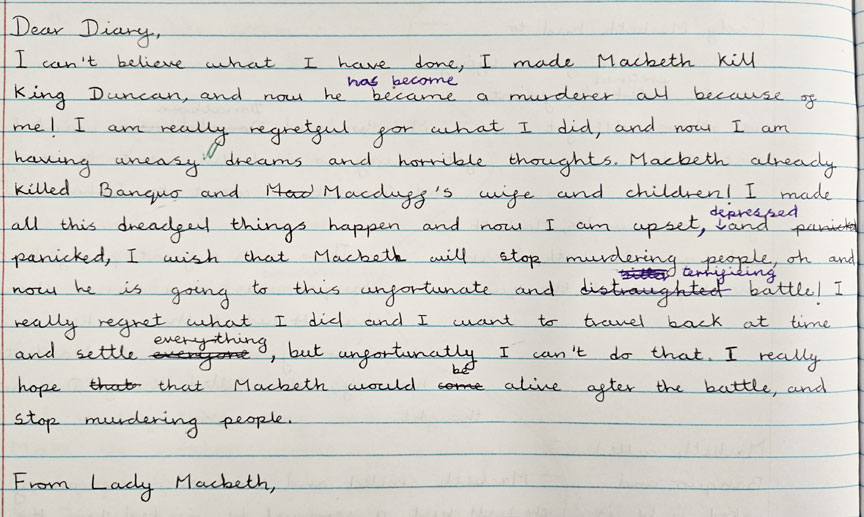 Dear Diary,
I can't believe what I have done, I made Macbeth kill
has become
King Duncan, and now he became a murderer all because of
me! I am really regretful for what I did, and now I am
having uneasy dreams and horrible thoughts. Macbeth already
killed Banquo and Mad Macduff's wife and children! I made
all this dreadful things happen and now I am upset, depressed and panicked
panicked, I wish that Macbeth will stop murdering people, oh and
terrifising
now he is going to this unfortunate and distraughted battle! I
really regret what I did and I want to travel back at time
everything
and settle everyone, but unfortunatly I can't do that. I really
be
hope that that Macbeth would come alive after the battle, and
stop murdering people.
From Lady Macbeth,